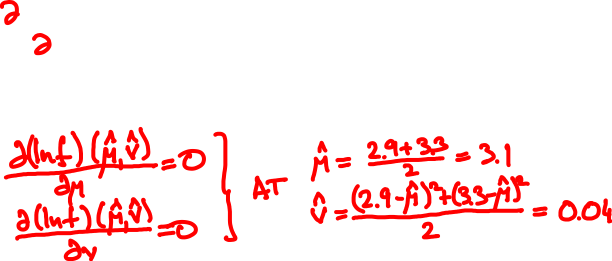 ∂
∂
∂(lnf)(μ̂,v̂)/∂μ = 0
∂(lnf)(μ̂,v̂)/∂v = 0
AT
μ̂ = (2.9+3.3)/2 = 3.1
v̂ = ((2.9-μ̂)²+(3.3-μ̂)²)/2 = 0.04